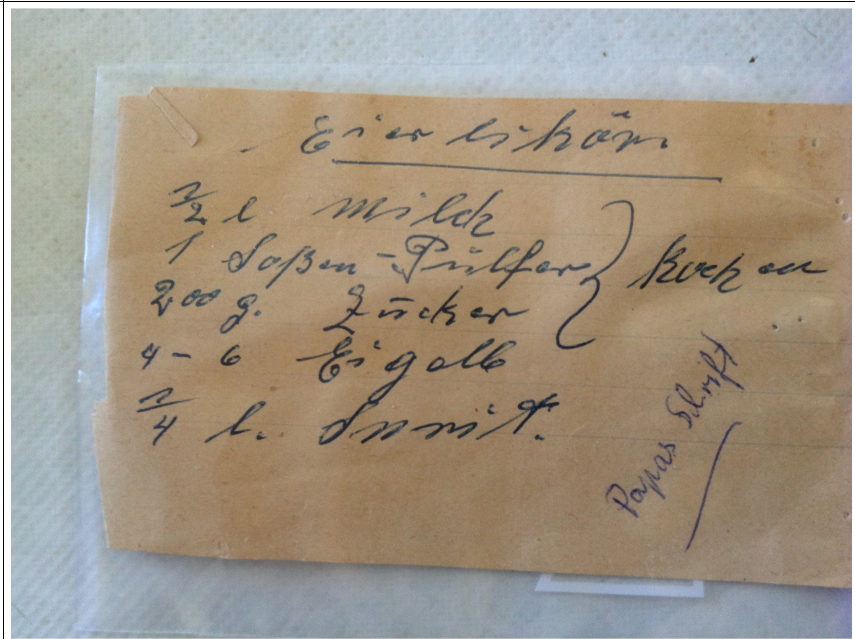 Eierlikör.
1/2 l Milch
1 Soßen-Pulfer
200 g. Zucker
4-6 Eigelb
kochen
1/4 l. Sprit.
Papas Schrift